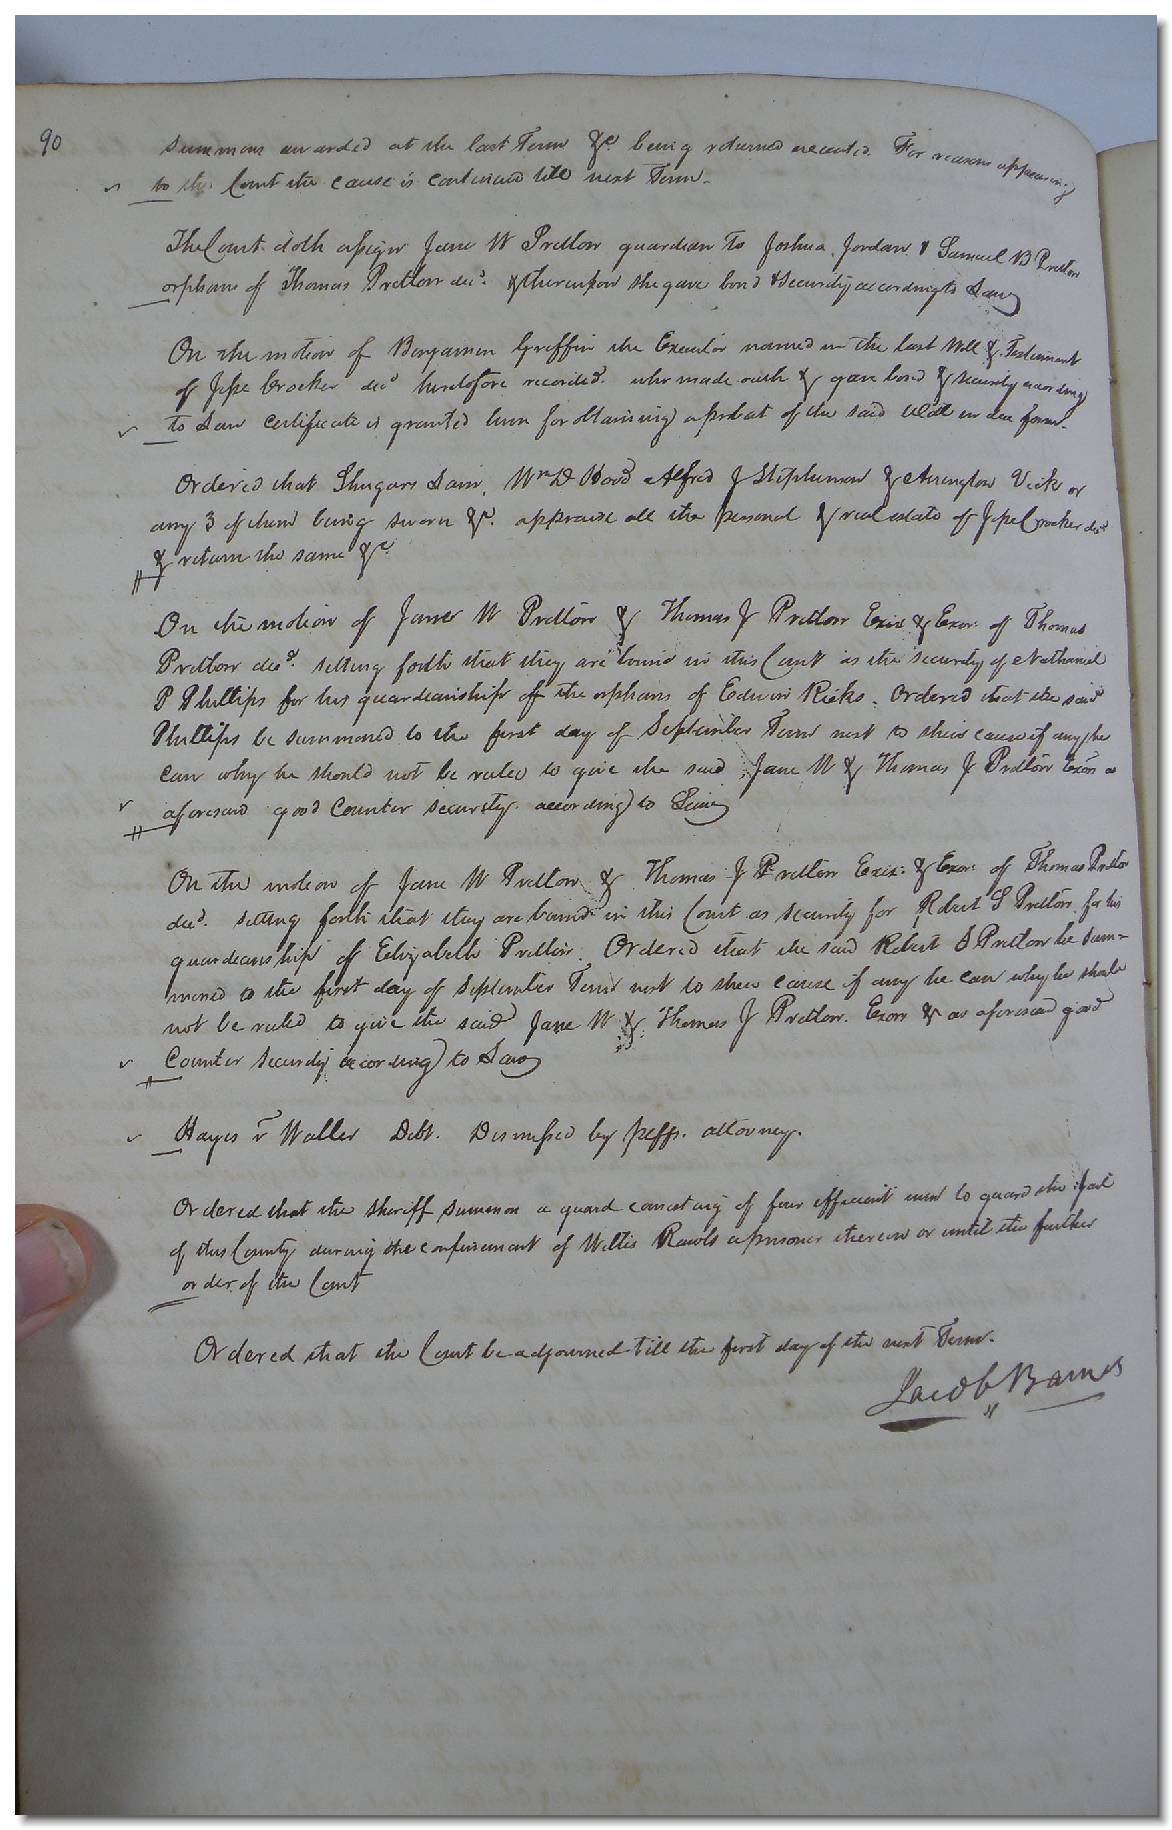 90
summons awarded at the last Term &c. being returned executed. For reasons appearing
to the Court the cause is continued till next Term.
The Court doth assign Jane W Pretlow guardian to Joshua, Jordan & Samuel B Pretlow
orphans of Thomas Pretlow decd. & thereupon she gave bond & security according to Law
On the motion of Benjamin Griffin the Executor named in the last Will & Testament
of Jesse Crocker decd heretofore recorded. who made oath & gave bond & security according
to Law Certificate is granted him for obtaining a probat of the said Will in due form.
Ordered that Shugars Lain, Wm D Hood Alfred J Stephenson & Arrington Vick or
any 3 of them being sworn &c. appraise all the personal & real estate of Jesse Crocker decd
& return the same &c
On the motion of Jane W Pretlow & Thomas J Pretlow Exix & Exor of Thomas
Pretlow decd. setting forth that they are bound in this Court as the security of Nathaniel
P Phillips for his guardianship of the orphans of Edwin Ricks. Ordered that the said
Phillips be summoned to the first day of September Term next to shew cause if any he
can why he should not be ruled to give the said Jane W & Thomas J Pretlow Exors as
aforesaid good Counter security according to Law
On the motion of Jane W Pretlow & Thomas J Pretlow Exix: & Exor of Thomas Pretlow
decd. setting forth that they are bound in this Court as security for Robert S Pretlow for his
guardianship of Elizabeth Pretlow. Ordered that the said Robert S Pretlow be sum-
moned to the first day of September Term next to shew cause if any he can why he should
not be ruled to give the said Jane W & Thomas J Pretlow. Exors & as aforesaid good
Counter security according to Law
Hayes v Waller Debt. Dismissed by plffs. attorney.
Ordered that the Sheriff summon a guard consisting of four efficient men to guard the Jail
of this County during the confinement of Willis Rawls a prisoner therein or until the further
order of the Court
Ordered that the Court be adjourned till the first day of the next Term.
Jacob Barnes